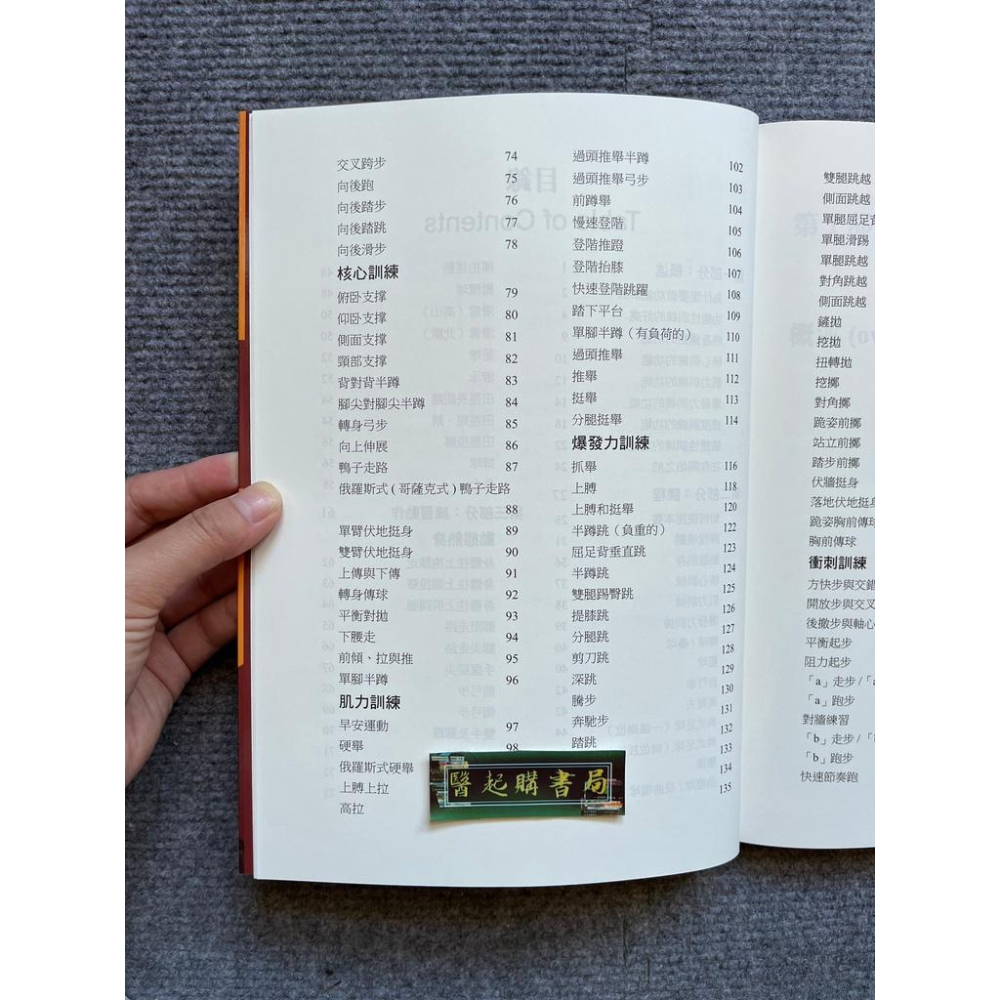 交叉跨步 74
向後跑 75
向後踏步 76
向後踏跳 77
向後滑步 78
核心訓練
俯臥支撐 79
仰臥支撐 80
側面支撐 81
頸部支撐 82
背對背半蹲 83
腳尖對腳尖半蹲 84
轉身弓步 85
向上伸展 86
鴨子走路 87
俄羅斯式(哥薩克式)鴨子走路
88
單臂伏地挺身 89
雙臂伏地挺身 90
上傳與下傳 91
轉身傳球 92
平衡對拋 93
下腰走 94
前傾、拉與推 95
單腳半蹲 96
肌力訓練
早安運動 97
硬舉 98
俄羅斯式硬舉
上膊上拉
高拉
過頭推舉半蹲 102
過頭推舉弓步 103
前蹲舉 104
慢速登階 105
登階推蹬 106
登階抬膝 107
快速登階跳躍 108
踏下平台 109
單腳半蹲(有負荷的) 110
過頭推舉 111
推舉 112
挺舉 113
分腿挺舉 114
爆發力訓練
抓舉 116
上膊 118
上膊和挺舉 120
半蹲跳(負重的) 122
屈足背垂直跳 123
半蹲跳 124
雙腿踢臀跳 125
提膝跳 126
分腿跳 127
剪刀跳 128
深跳 129
騰步 130
奔馳步 131
踏跳 132
133
134
135
醫起購書局
雙腿跳越
側面跳越
單腿屈足背
單腿滑踢
單腿跳越
對角跳越
側面跳越
鏟拋
挖拋
扭轉拋
挖擲
對角擲
跪姿前擲
站立前擲
踏步前擲
伏牆挺身
落地伏地挺身
跪姿胸前傳球
胸前傳球
衝刺訓練
方快步與交錯
開放步與交叉
後撤步與軸心
平衡起步
阻力起步
「a」走步/「a
「a」跑步
對牆練習
「b」走步/「
「b」跑步
快速節奏跑